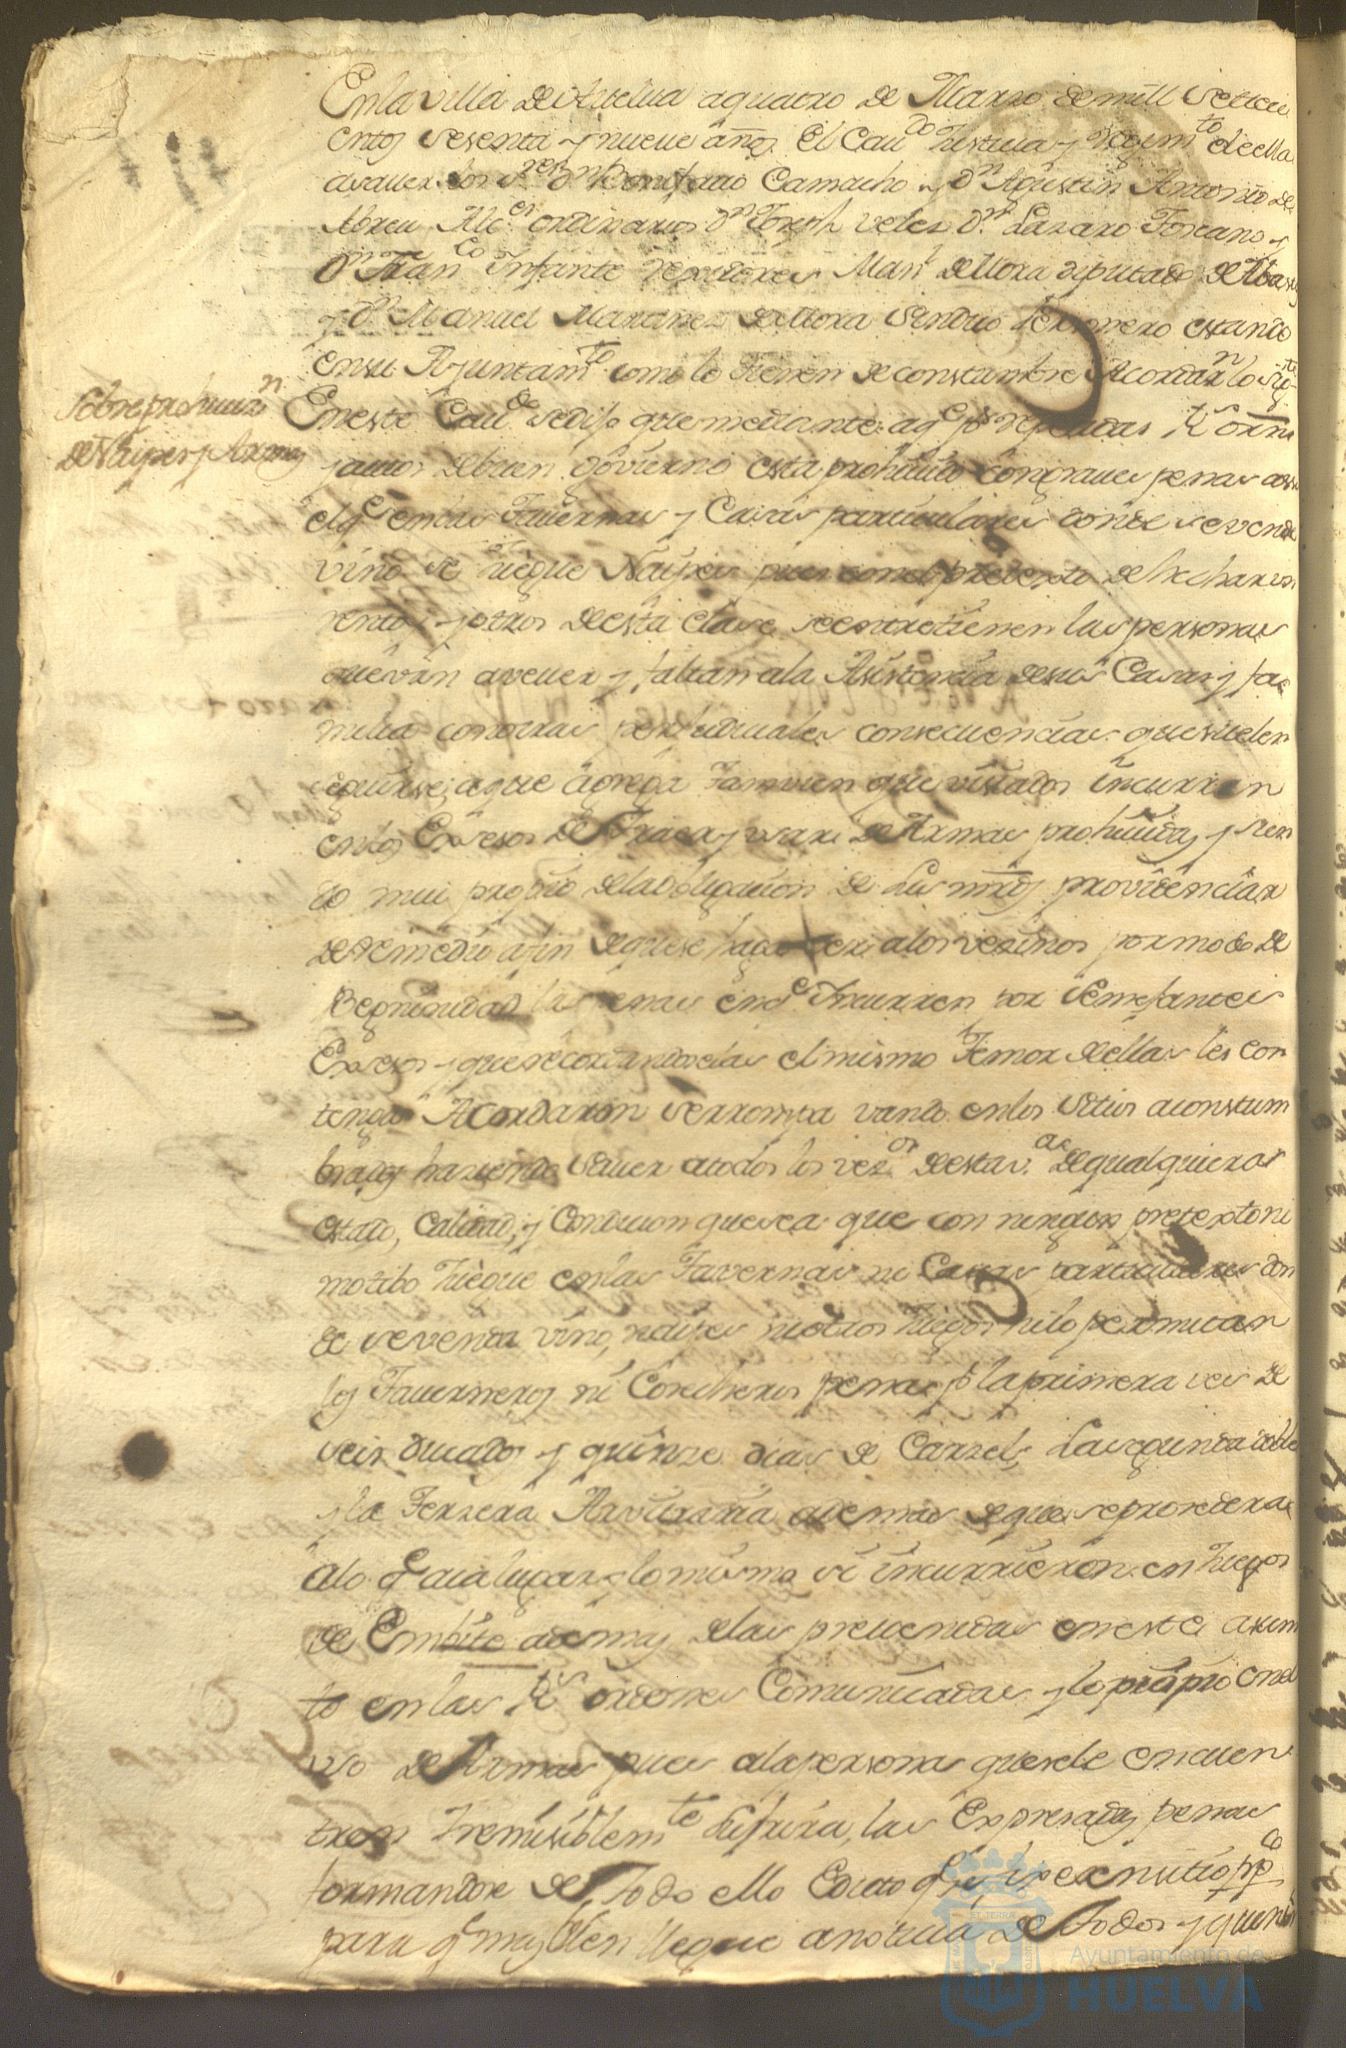 En la villa de Huelva a quatro de Marzo de mill Setteci
entos sesenta y nueve años. El Cau.do Justicia y Regim.to de ella
asauer los S.res D.n Bonifacio Camacho y D.n Agustin Antonio de
Abreu Alc.es ordinarios D.n Joseph Velez D.n Lazaro Toscano y
D.n Fran.co Infante rexidores Man.l de Mora diputado de Abastos
y D.n Manuel Martinez de Mora Sindico Personero estando
en su Ayuntam.to como lo tienen de constumbre Acordar.n lo sig.te
Sobre prohivic.n
de Naipes y Armas
En este Cau.do se dijo que mediante a q.e p.r repetidas R.s orñs
y autos de buen govierno esta prohivido con graues penas
el q.e en las Tauernas y Casas particulares donde se vende
vino se juegue Naipes pues con el pretexto de
y otros de esta clase se entretienen las personas
que van a veuer y faltan a la Asistencia de sus Casas y fa
milia con otras perjudiciales consecuencias que suelen
seguirse, a que agrega tamvien que viciados incurren
en los Excesos de traer y usar de Armas prohividas y sien
do mui propio de la obligacion de Sus mrds providenciar
de remedio a fin de que se haga ver a los vezinos por modo de
Veguinidad las penas en q.e Incurren por Semejantes
Excesos y que recordandoselas el mismo temor de ellas les con
tenga Acordaron se rrompa vando en los sitios aconstum
brados haziendo sauer a todos los vez.os de esta v.a de qualquiera
estado, Calidad, y Condicion que sea que con ningun pretexto ni
motibo Juegue en las Tavernas ni Casas particulares don
de se venda vino, naipes ni otros Juegos ni lo permitan
los Tauerneros ni Cosecheros pena p.r la primera ves de
seis ducados y quinze dias de Carzel, La segunda doble
y la Terzera Arvitraria ademas de que se procedera
a lo q.e aia lugar y lo mismo si incurrieren en Juegos
de Embite ademas de las preuenidas en este asum
to en las R.s ordenes Comunicadas, y lo propio en el
uso de Armas pues a la persona que se le encuen
tren Irremisiblem.te sufrira, las Expresadas penas
formandose de todo ello Edicto q.e se
para q.e mas bien llegue a noticia de todos y
Ayuntamiento de
HUELVA